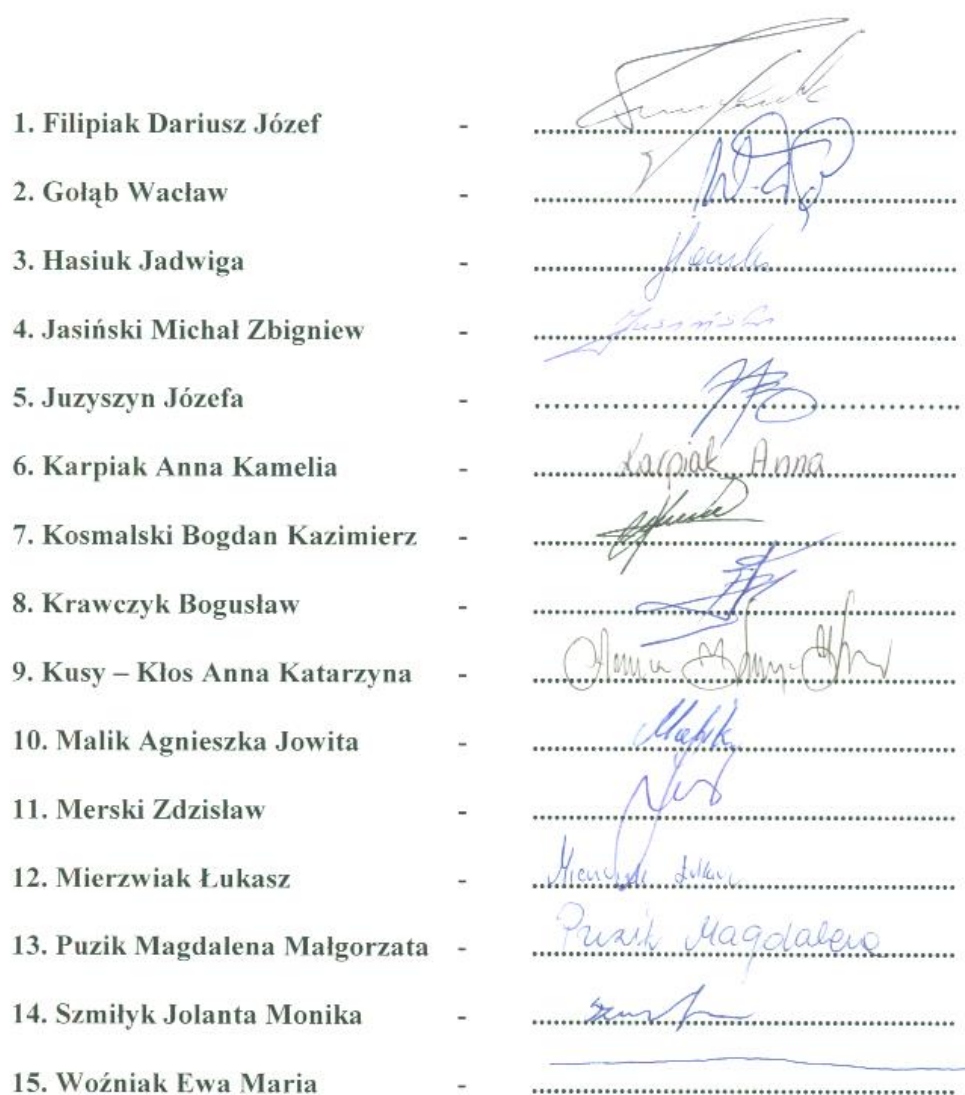 1. Filipiak Dariusz Józef - ........................
2. Gołąb Wacław - ........................
3. Hasiuk Jadwiga - ........................
4. Jasiński Michał Zbigniew - ........................
5. Juzyszyn Józefa - ........................
6. Karpiak Anna Kamelia - Karpiak Anna
7. Kosmalski Bogdan Kazimierz - ........................
8. Krawczyk Bogusław - ........................
9. Kusy – Kłos Anna Katarzyna - ........................
10. Malik Agnieszka Jowita - Malik
11. Merski Zdzisław - ........................
12. Mierzwiak Łukasz - ........................
13. Puzik Magdalena Małgorzata - Puzik Magdalena
14. Szmiłyk Jolanta Monika - ........................
15. Woźniak Ewa Maria - ........................